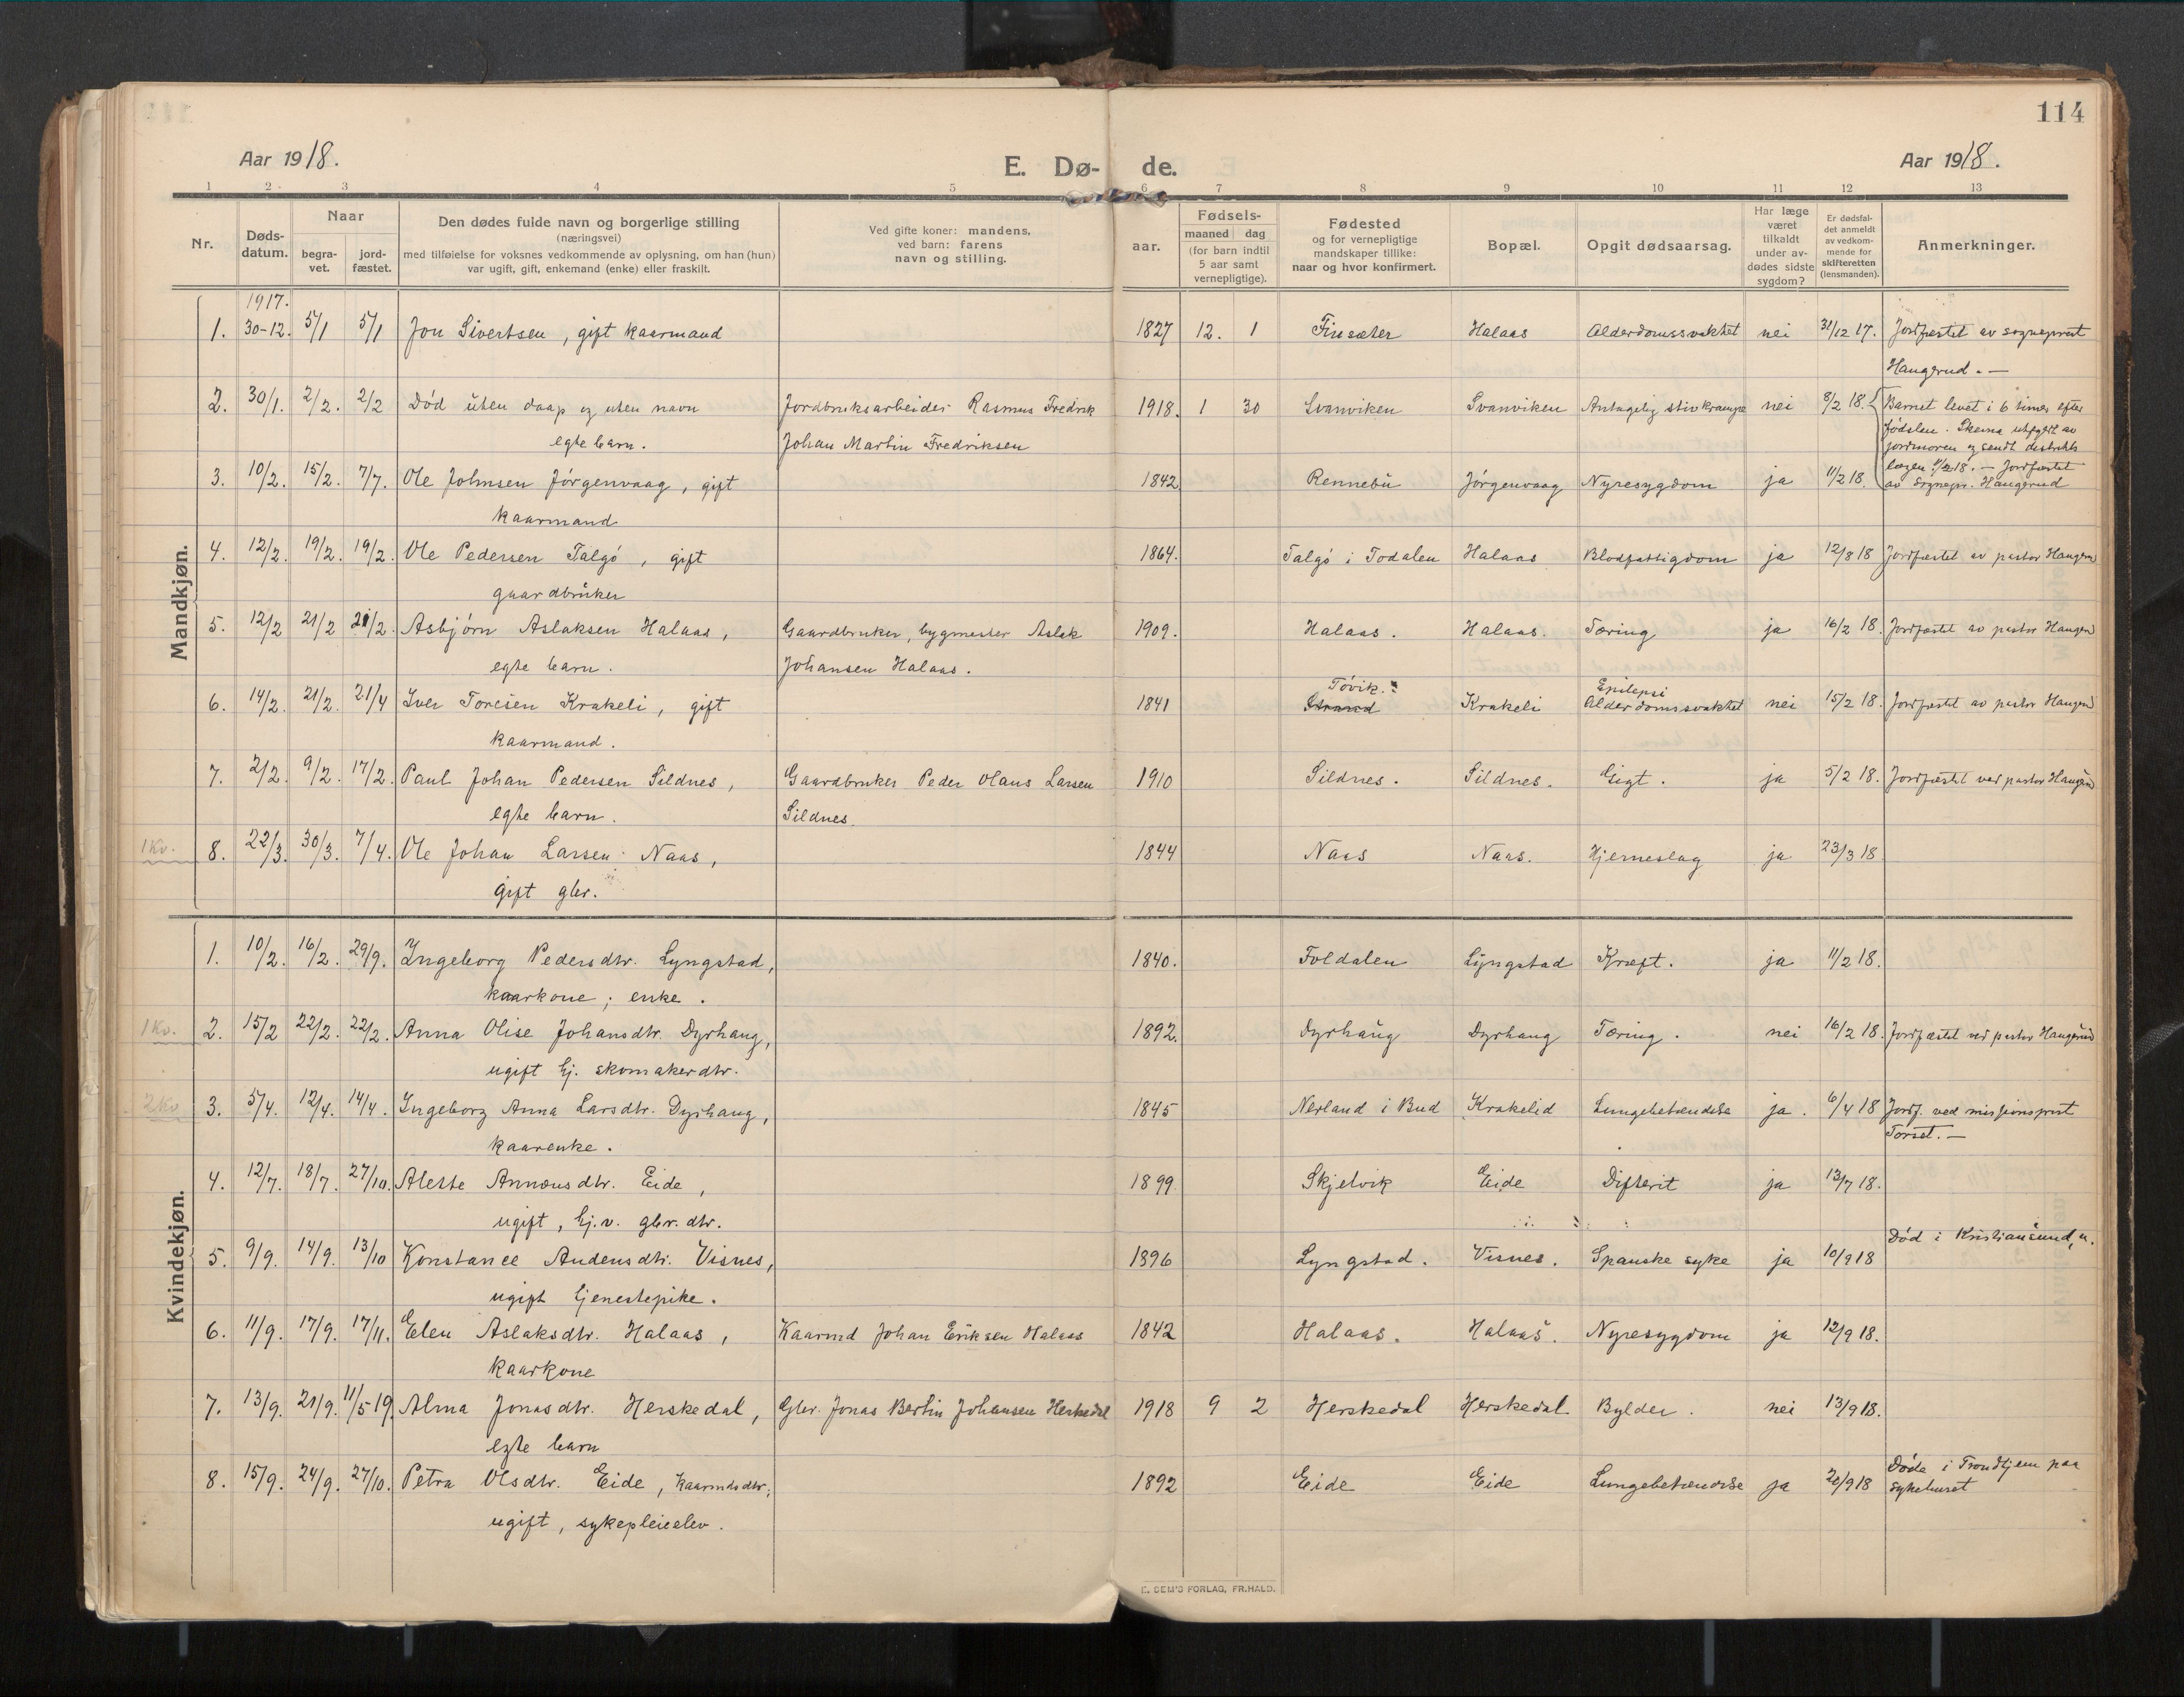 114
Aar 1918.
E. Dø- de.
Aar 1918.
1 2 3 4 5 6 7 8 9 10 11 12 13
Nr.
Døds-
datum.
Naar
begra-
vet.
jord-
fæstet.
Den dødes fulde navn og borgerlige stilling
(næringsvei)
med tilføielse for voksnes vedkommende av oplysning, om han (hun)
var ugift, gift, enkemand (enke) eller fraskilt.
Ved gifte koner: mandens,
ved barn: farens
navn og stilling.
aar.
Fødsels-
maaned dag
(for barn indtil
5 aar samt
vernepligtige).
Fødested
og for vernepligtige
mandskaper tillike:
naar og hvor konfirmert.
Bopæl.
Opgit dødsaarsag.
Har læge
været
tilkaldt
under av-
dødes sidste
sygdom?
Er dødsfal-
det anmeldt
av vedkom-
mende for
skifteretten
(lensmanden).
Anmerkninger.
Mandkjøn.
1917.
1. 30-12. 5/1 5/1 Jon Sivertsen, gift kaarmand 1827 12. 1 Finsæter Halaas Alderdomssvakhet nei 31/12 17. Jordfæstet av sogneprest
Haugerud. —
2. 30/1. 2/2. 2/2 Død uten daap og uten navn Jordbruksarbeider Rasmus Fredrik 1918. 1 30 Svanviken Svanviken Antagelig stivkrampe nei 8/2 18. Barnet levet i 6 timer efter
egte barn. Johan Martin Fredriksen fødslen. Skema utfylt av
jordmoren og sendt distrikts
3. 10/2. 15/2. 7/7. Ole Johnsen Jørgenvaag, gift 1842 Rennebu Jørgenvaag Nyresygdom ja 11/2 18. lægen 11/2 18. — Jordfæstet
av Sognepr. Haugerud
kaarmand
4. 12/2. 19/2. 19/2. Ole Pedersen Talgø, gift 1864. Talgø i Todalen Halaas Blodfattigdom ja 12/8 18 Jordfæstet av pastor Haugerud
gaardbruker
5. 12/2 21/2 21/2. Asbjørn Aslaksen Halaas, Gaardbruker, bygmester Aslak 1909. Halaas. Halaas. Tæring ja 16/2 18. Jordfæstet av pastor Haugerud
egte barn. Johansen Halaas.
Tøvik. Epilepsi
6. 14/2. 21/2. 21/4 Iver Toresen Krakeli, gift 1841 Strand Krakeli Alderdomssvakhet nei 15/2 18. Jordfæstet av pastor Haugerud
kaarmand.
7. 2/2. 9/2. 17/2. Paul Johan Pedersen Sildnes, Gaardbruker Peder Olaus Larsen 1910 Sildnes. Sildnes. Gigt. ja 5/2 18. Jordfæstet ved pastor Haugerud
egte barn. Sildnes.
1 Kv. 8. 22/3. 30/3. 7/4. Ole Johan Larsen Naas, 1844 Naas Naas. Hjerneslag ja 23/3 18
gift gbr.
Kvindekjøn.
1. 10/2. 16/2. 29/9. Ingeborg Pedersdtr. Lyngstad, 1840. Foldalen Lyngstad Kræft. ja 11/2 18.
kaarkone; enke.
1 Kv. 2. 15/2 22/2. 22/2. Anna Olise Johansdtr. Dyrhaug, 1892. Dyrhaug Dyrhaug Tæring. nei 16/2 18. Jordfæstet ved pastor Haugerud
ugift hj. skomakerdtr.
2 Kv 3. 5/4. 12/4. 14/4. Ingeborg Anna Larsdtr. Dyrhaug, 1845 Nerland i Bud Krakelid Lungebetændelse ja. 6/4 18 Jordf. ved missionsprest
Torset. —
kaarenke.
4. 12/7. 18/7. 27/10. Alette Annæusdtr. Eide, 1899. Skjelvik Eide Difterit ja 13/7 18.
ugift, hj.v. gbr. dtr.
Død i Kristiansund, n.
5. 9/9. 14/9. 13/10 Konstance Audensdtr. Visnes, 1896 Lyngstad. Visnes. Spanske syke ja 10/9 18
ugift tjenestepike.
6. 11/9. 17/9. 17/11. Elen Aslaksdtr. Halaas, Kaarmd Johan Eriksen Halaas 1842 Halaas. Halaas. Nyresygdom ja 12/9 18.
kaarkone
7. 13/9. 21/9. 11/5 19. Alma Jonasdtr. Herskedal, Gbr. Jonas Bertin Johansen Herskedal 1918 9 2 Herskedal Herskedal Bylder. nei 13/9 18.
egte barn
Døde i Trondhjem paa
8. 15/9. 24/9. 27/10. Petra Olsdtr. Eide, kaarmdsdtr; 1892 Eide Eide Lungebetændelse ja 20/9 18 sykehuset
ugift, sykepleieelev.
E. SEM'S FORLAG, FR.HALD.